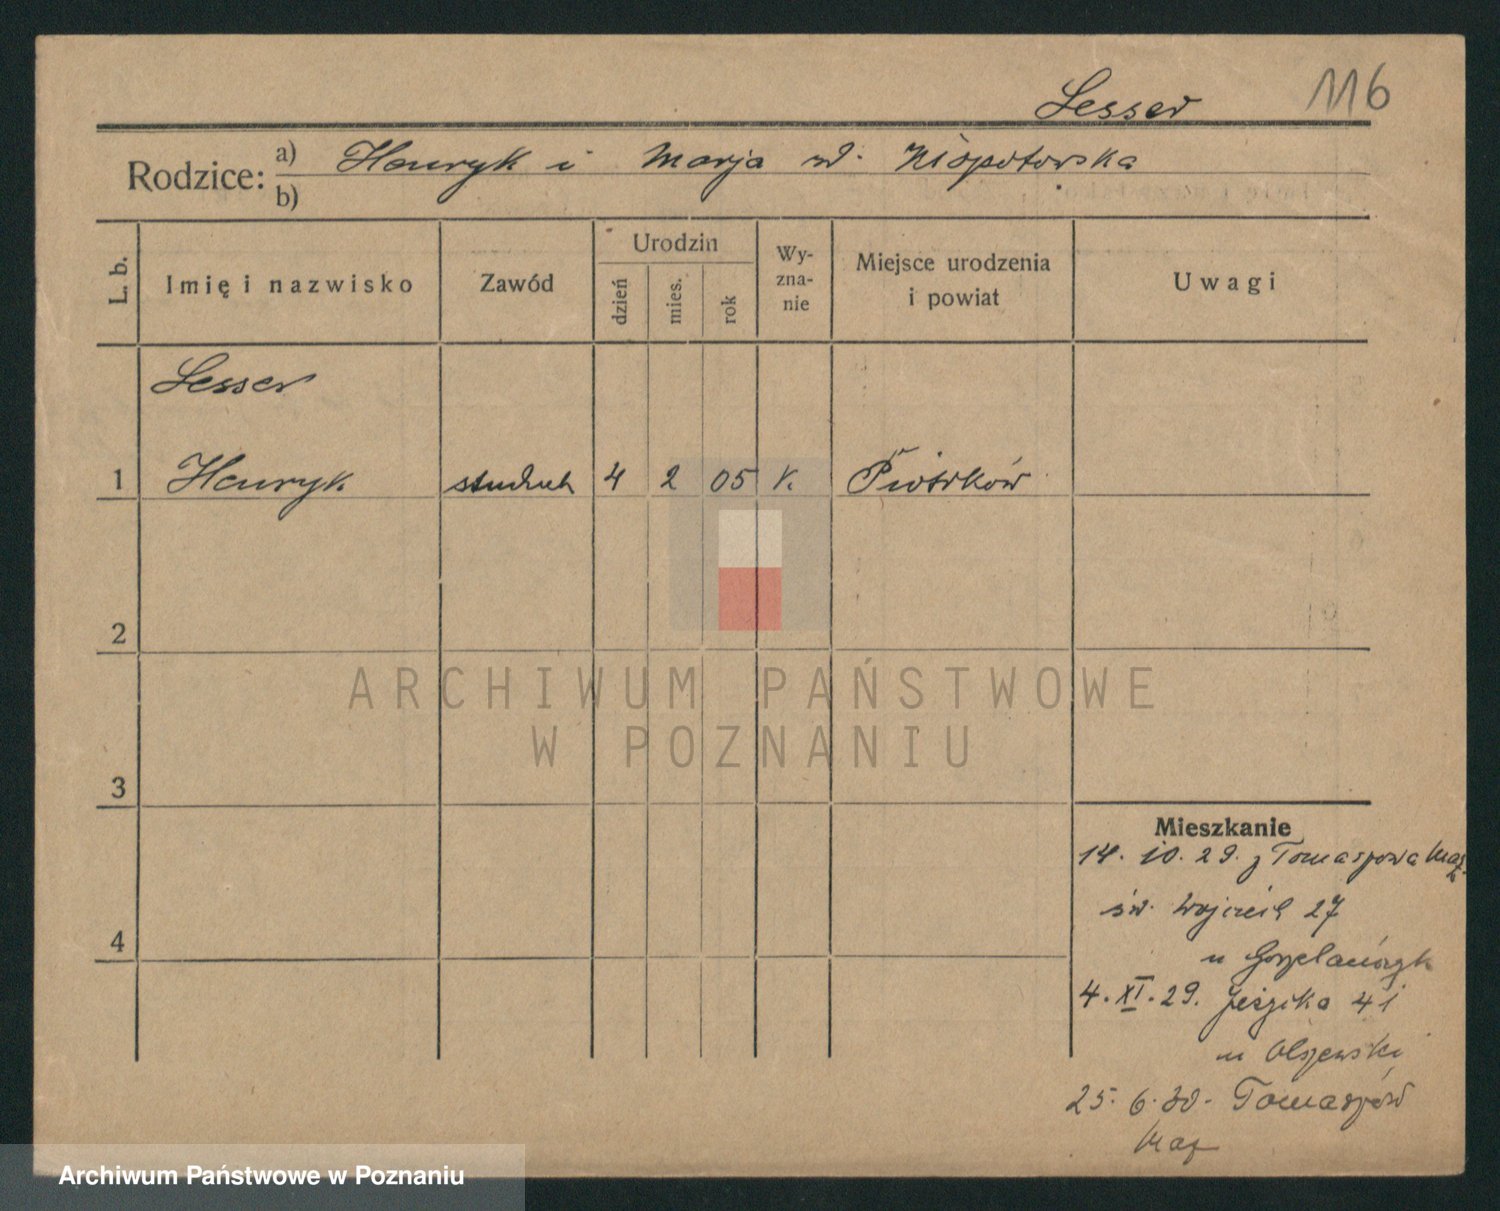 116
Lesser
Rodzice: a) Henryk i Marja ur. Kłopotowska
b)
L. b.
Imię i nazwisko
Zawód
Urodzin
dzień
mies.
rok
Wy-
zna-
nie
Miejsce urodzenia
i powiat
Uwagi
Lesser
1 Henryk student 4 2 05 Piotrków
2
3
4
Mieszkanie
14. 10. 29. z Tomaszowa Maz.
św. Wojciech 27
u
4. XI. 29. Jeżyka 41
u Olszewski
25. 6. 30. Tomaszów
Maz
ARCHIWUM PAŃSTWOWE
W POZNANIU
Archiwum Państwowe w Poznaniu